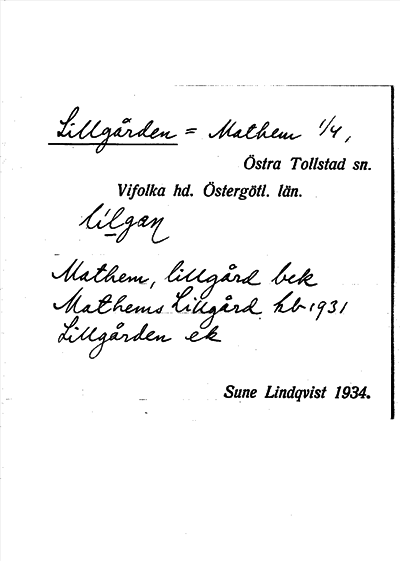 Lillgården = Mathem 1/4,
Östra Tollstad sn.
Vifolka hd. Östergötl. län.
lilgan
Mathem, lillgård bek
Mathems Lillgård hb 1931
Lillgården ek
Sune Lindqvist 1934.